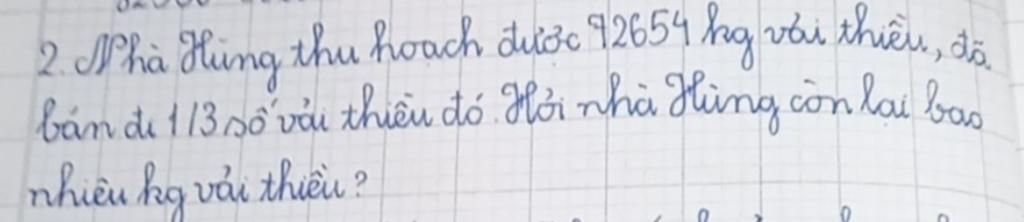 2. Nhà Hùng thu hoạch được 92654 kg vải thiều, đã
bán đi 1/3 số vải thiều đó. Hỏi nhà Hùng còn lại bao
nhiêu kg vải thiều?